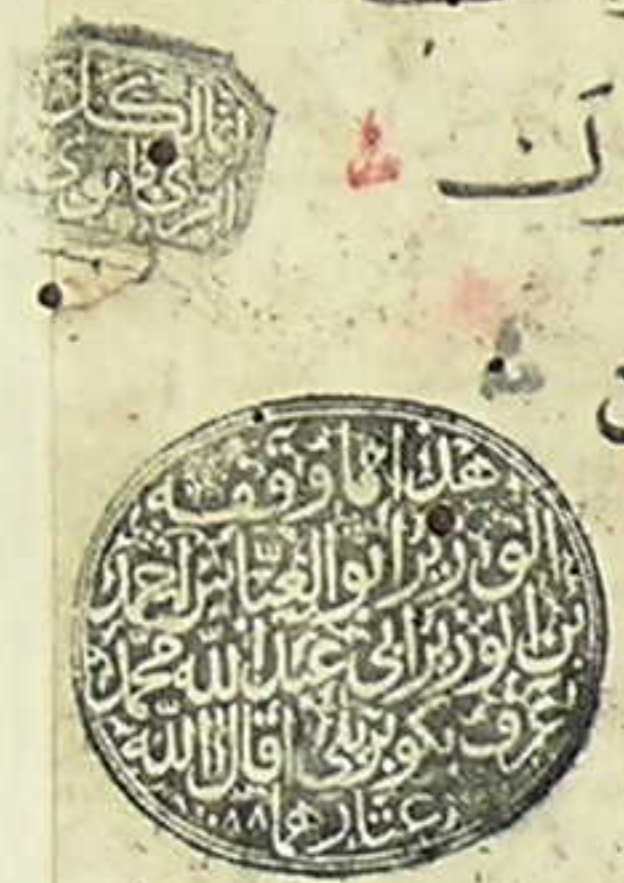 انما لكل
امرئ ما نوى
هذا ما وقفه
الوزير ابو العباس احمد
بن الوزير ابي عبد الله محمد
عرف بكوبريلي اقال الله
عثارهما ١٠٨٨